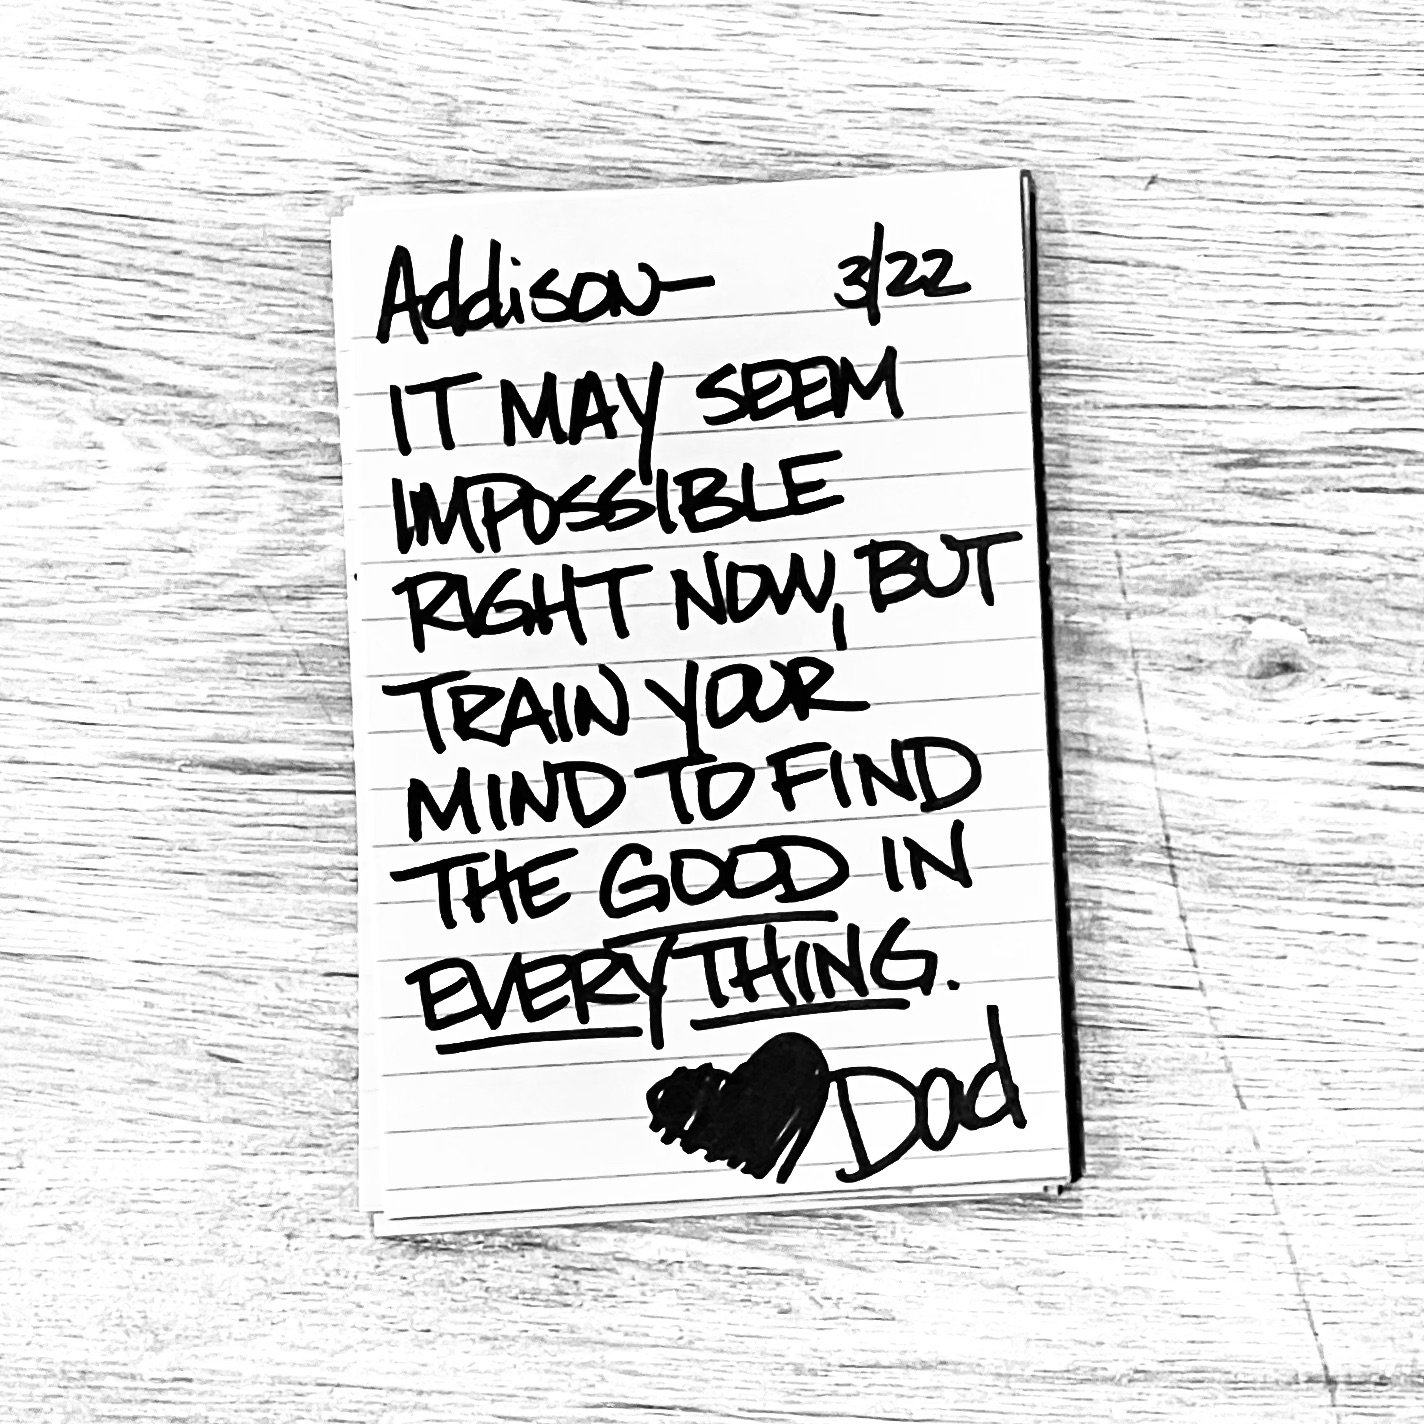 Addison— 3/22
IT MAY SEEM
IMPOSSIBLE
RIGHT NOW, BUT
TRAIN YOUR
MIND TO FIND
THE GOOD IN
EVERYTHING.
Dad